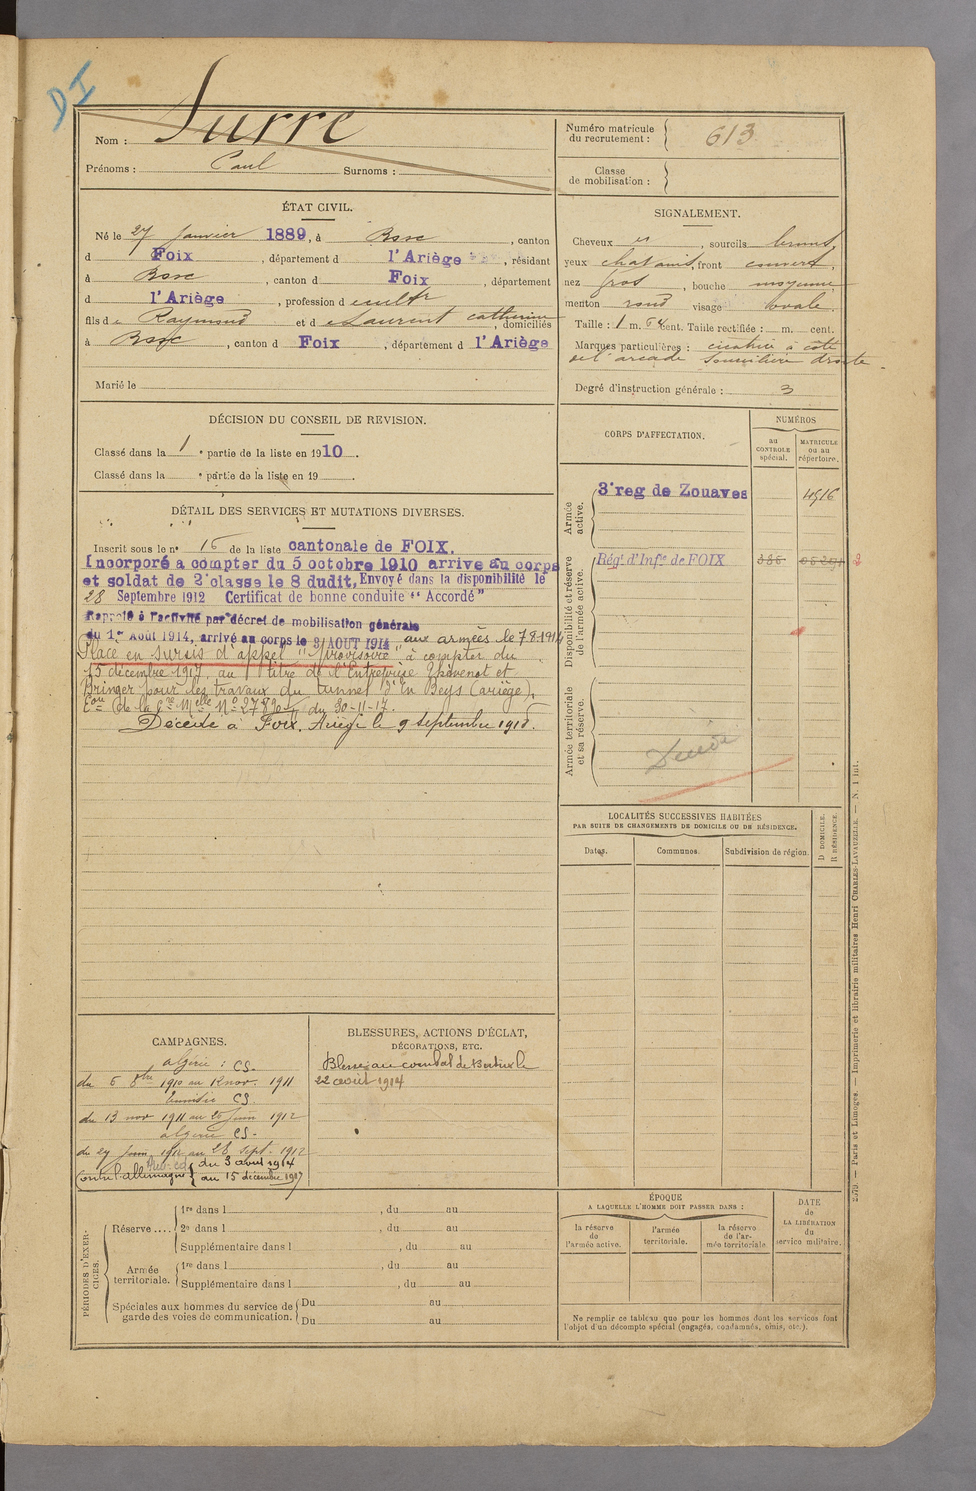 DI
Nom : Surre
Prénoms : Paul Surnoms :
Numéro matricule du recrutement : 613
Classe de mobilisation :
ÉTAT CIVIL.
Né le 27 janvier 1889, à Bssc, canton
d Foix, département d l'Ariège, résidant
à Bssc, canton d Foix, département
d l'Ariège, profession d cultr
fils de Raymond et de Laurent Catherine, domiciliés
à Bssc, canton d Foix, département d l'Ariège
Marié le
SIGNALEMENT.
Cheveux et, sourcils bruns,
yeux chatains, front couvert,
nez gros, bouche moyenne
menton rond visage ovale.
Taille : 1 m. 64 cent. Taille rectifiée : m. cent.
Marques particulières : cicatrice à côté
de l'arcade sourcilière droite.
Degré d'instruction générale : 3
DÉCISION DU CONSEIL DE REVISION.
Classé dans la 1e partie de la liste en 1910.
Classé dans la e partie de la liste en 19 .
DÉTAIL DES SERVICES ET MUTATIONS DIVERSES.
Inscrit sous le no 16 de la liste cantonale de FOIX.
Incorporé a compter du 5 octobre 1910 arrivé au corps
et soldat de 2e classe le 8 dudit, Envoyé dans la disponibilité le
28 Septembre 1912 Certificat de bonne conduite "Accordé"
Rappelé à l'activité par décret de mobilisation générale
du 1er Août 1914, arrivé au corps le 3 AOUT 1914 aux armées le 7 8.1914
Placé en sursis d'appel "provisoire" à compter du
15 décembre 1917, au titre de l'Entreprise Thévenot et
Bringer pour les travaux du tunnel d'En Beys (Ariège).
du 30-11-17.
Décédé à Foix, Ariège le 9 septembre 1918.
CORPS D'AFFECTATION.
NUMÉROS
au CONTROLE spécial.
MATRICULE ou au répertoire.
Armée active.
3e reg de Zouaves 4516
Disponibilité et réserve de l'armée active.
Régt d'Infie de FOIX
Armée territoriale et sa réserve.
Décédé
LOCALITÉS SUCCESSIVES HABITÉES
PAR SUITE DE CHANGEMENTS DE DOMICILE OU DE RÉSIDENCE.
Dates.
Communes.
Subdivision de région.
D DOMICILE.
R RÉSIDENCE.
CAMPAGNES.
Algérie : CS.
du 6 8bre 1910 au 12 nov. 1911
Tunisie CS.
du 13 nov 1911 au 26 juin 1912
algérie CS-
du 27 juin 1912 au 28 sept. 1912
Contre l'allemagne du 3 août 1914
au 15 décembre 1917
BLESSURES, ACTIONS D'ÉCLAT,
DÉCORATIONS, ETC.
Blessé au combat de Bertrix le
22 août 1914
PÉRIODES D'EXERCICES.
Réserve .... 1re dans l , du au
2e dans l , du au
Supplémentaire dans l , du au
Armée territoriale. 1re dans l , du au
Supplémentaire dans l , du au
Spéciales aux hommes du service de garde des voies de communication. Du au
Du au
ÉPOQUE
A LAQUELLE L'HOMME DOIT PASSER DANS :
la réserve de l'armée active.
l'armée territoriale.
la réserve de l'armée territoriale.
DATE de LA LIBÉRATION du service militaire.
Ne remplir ce tableau que pour les hommes dont les services font
l'objet d'un décompte spécial (engagés, condamnés, omis, etc.).
Paris et Limoges. — Imprimerie et librairie militaires Henri CHARLES-LAVAUZELLE. — N. 1 int.